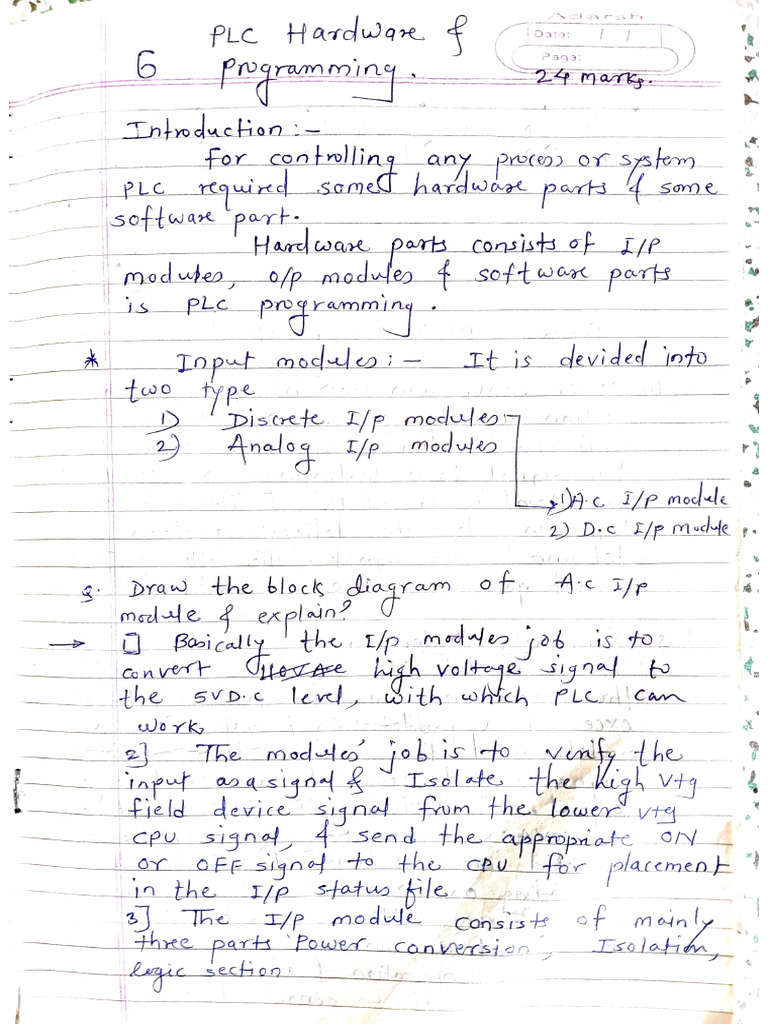 Adarsh
PLC Hardware &
Date: / /
6 programming.
Page:
24 marks.
Introduction :-
for controlling any process or system
PLC required some hardware parts & some
software part.
Hardware parts consists of I/P
modules, o/p modules & software parts
is PLC programming.
* Input modules :- It is devided into
two type
1) Discrete I/p modules
2) Analog I/p modules
1) A.c I/p module
2) D.c I/p module
Q. Draw the block diagram of A.c I/p
module & explain?
→ 1] Basically the I/p modules job is to
convert high voltage signal to
the 5VD.c level, with which PLC can
work,
2] The modules' job is to verify the
input as a signal & Isolate the high vtg
field device signal from the lower vtg
CPU signal, & send the appropriate ON
or OFF signal to the CPU for placement
in the I/p status file.
3] The I/p module consists of mainly
three parts Power conversion, Isolation,
logic section.